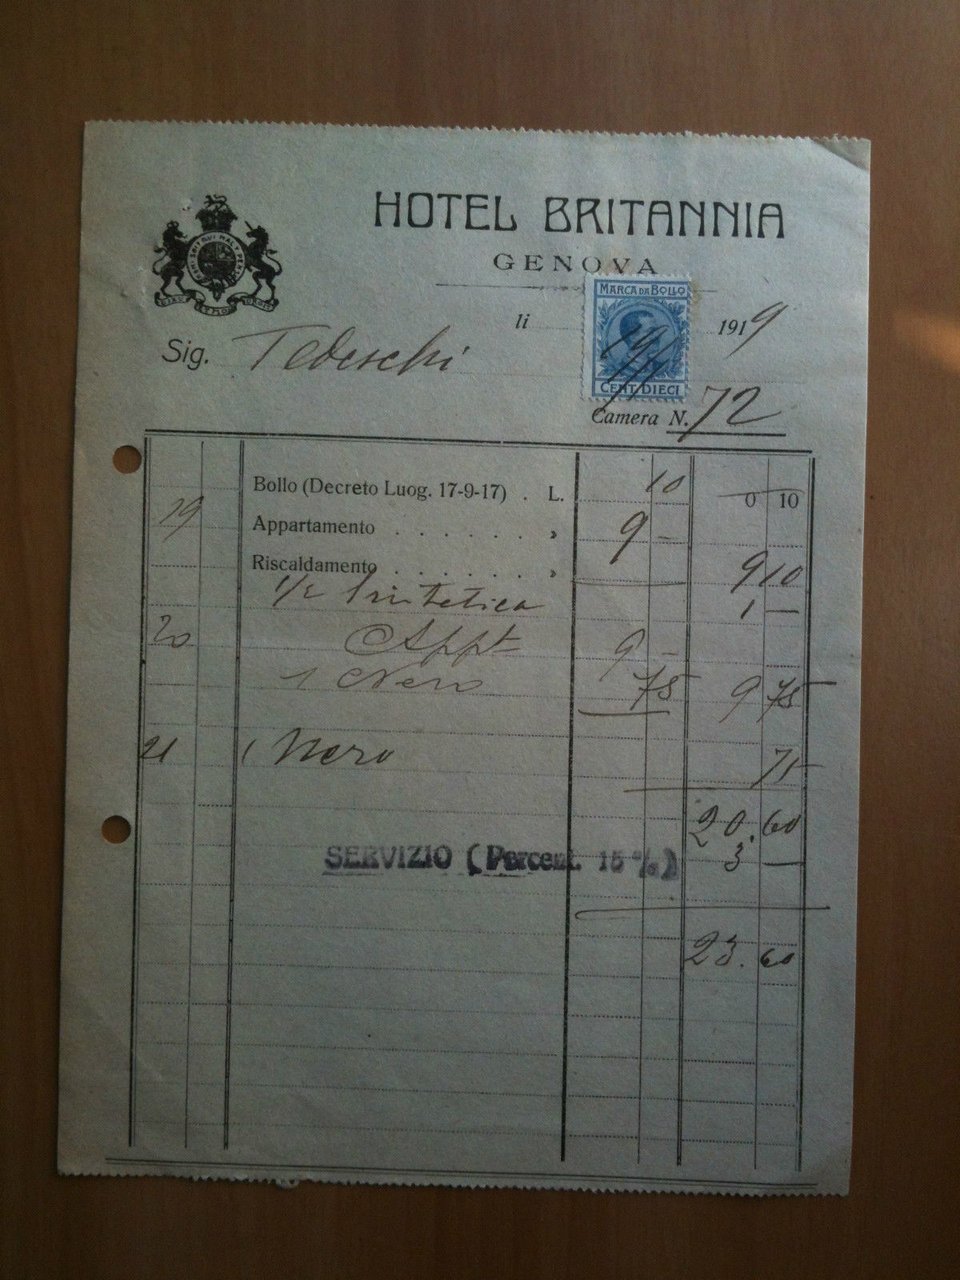 HOTEL BRITANNIA
GENOVA
MARCA DA BOLLO
CENT. DIECI
li 1919
Sig. Tedeschi
Camera N. 72
Bollo (Decreto Luog. 17-9-17) . L. 10 0 10
19 Appartamento . . . . . . . » 9 –
Riscaldamento . . . . . . . » 9 10
1/2 1 –
20 Appt 9 –
1 Nero 75 9 75
21 1 Nero 75
20.60
SERVIZIO (Percent. 15 %) 3 –
23.60